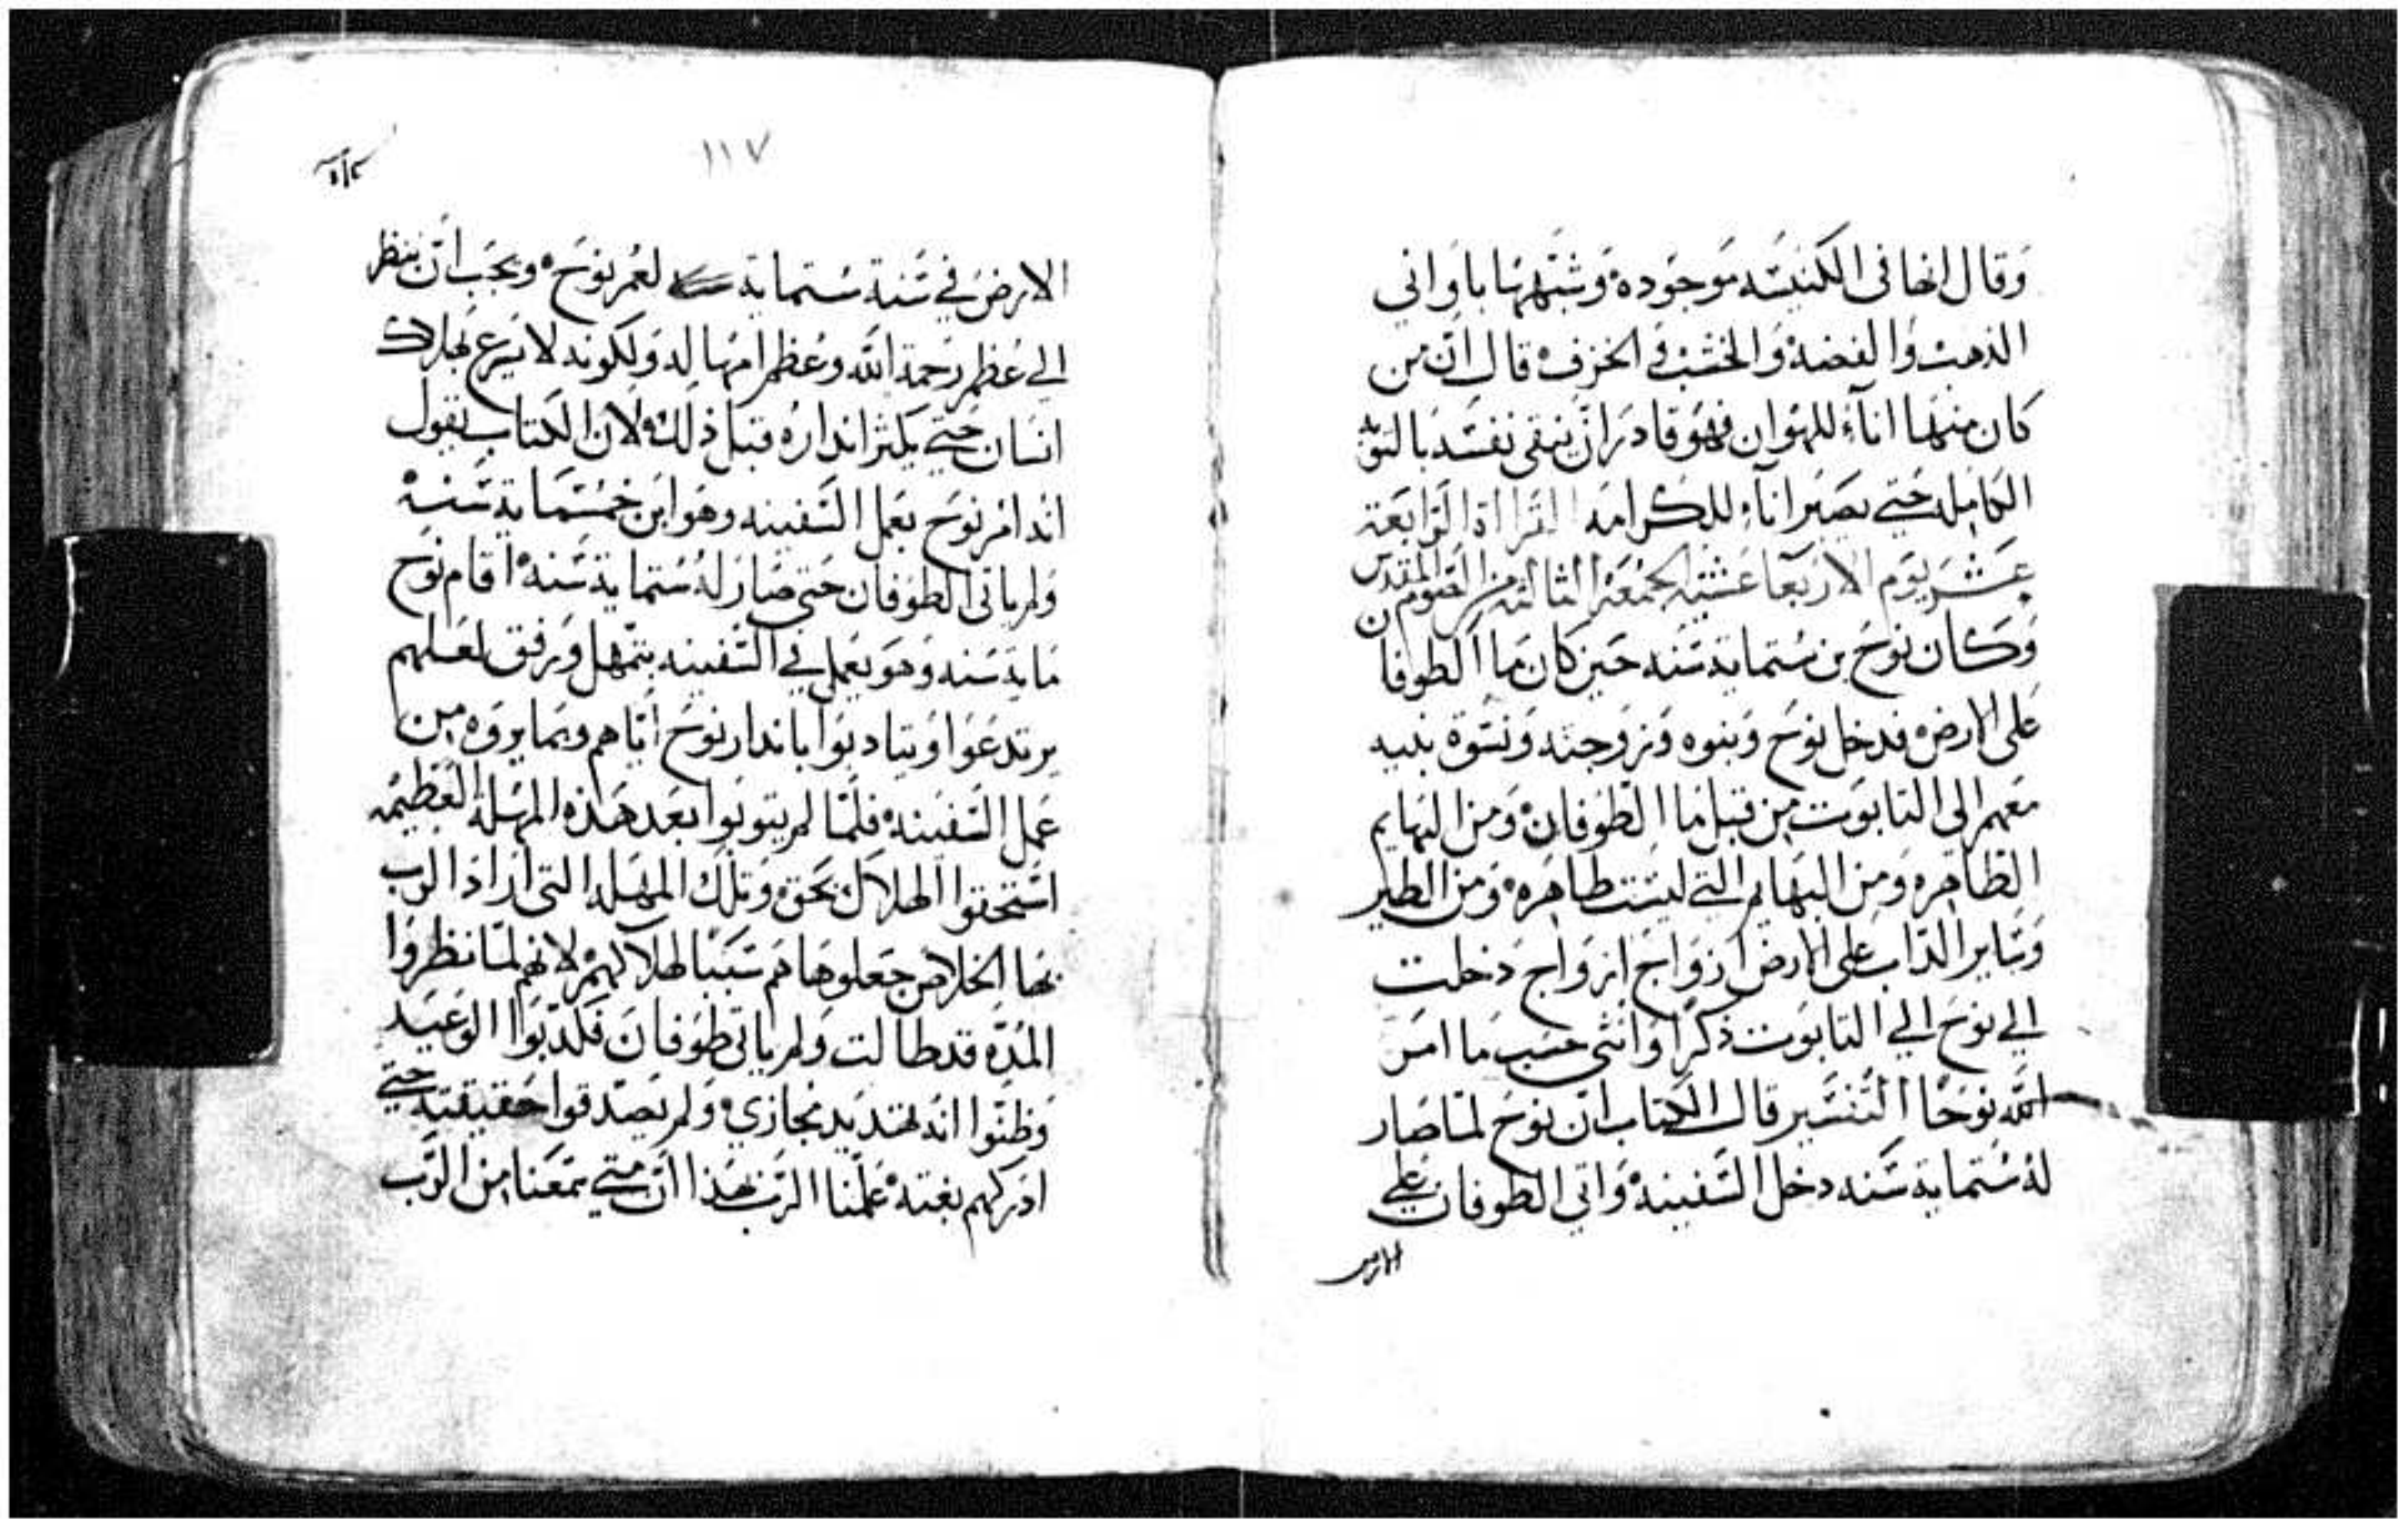 وقال انها في الكنيسه موجوده وشبهها باواني
الذهب والفضه والخشب والخزف قال ان من
كان منها اناء للهوان فهو قادر ان ينقي نفسه بالتوبه
الكامله حتي يصير اناء للكرامه القراة الرابعة
عشر يوم الاربعا عشية الجمعه الثالثه من الصوم المقدس
وكان نوح بن ستماية سنه حين كان ما الطوفان
على الارض فدخل نوح وبنوه وزوجته ونسوة بنيه
معهم الى التابوت من قبل ما الطوفان ومن البهايم
الطاهره ومن البهايم التي ليست طاهره ومن الطير
وساير الداب على الارض ازواج ازواج دخلت
الي نوح الي التابوت ذكرا وانثى حسب ما امر
الله نوحا التفسير قال الكتاب ان نوح لما صار
له ستماية سنه دخل السفينه واتي الطوفان علي
الارض
١١٧
الارض في سنة ستماية لعمر نوح ويجب ان ننظر
الي عظم رحمة الله وعظم امهاله ولكونه لا يسرع بهلاك
انسان حتي يكثر انداره قبل ذلك لان الكتاب يقول
انه امر نوح بعمل السفينه وهو ابن خمسماية سنه
ولم ياتى الطوفان حتى صار له ستماية سنه اقام نوح
ماية سنه وهو يعمل في السفينه بتمهل ورفق لعلهم
يرتدعوا ويتادبوا باندار نوح اياهم وبما يروه من
عمل السفينه فلما لم يتوبوا بعد هذه المهلة العظيمه
استحقوا الهلاك بحق وتلك المهله التى اراد الرب
بها الخلاص جعلوها هم سببا لهلاكهم لانهم لما نظروا
المده قد طالت ولم ياتى طوفان فكدبوا الوعيد
وظنوا انه تهديد مجازي ولم يصدقوا حقيقته حتي
ادركهم بغتة علمنا الرب هذا ان متي سمعنا من الرب